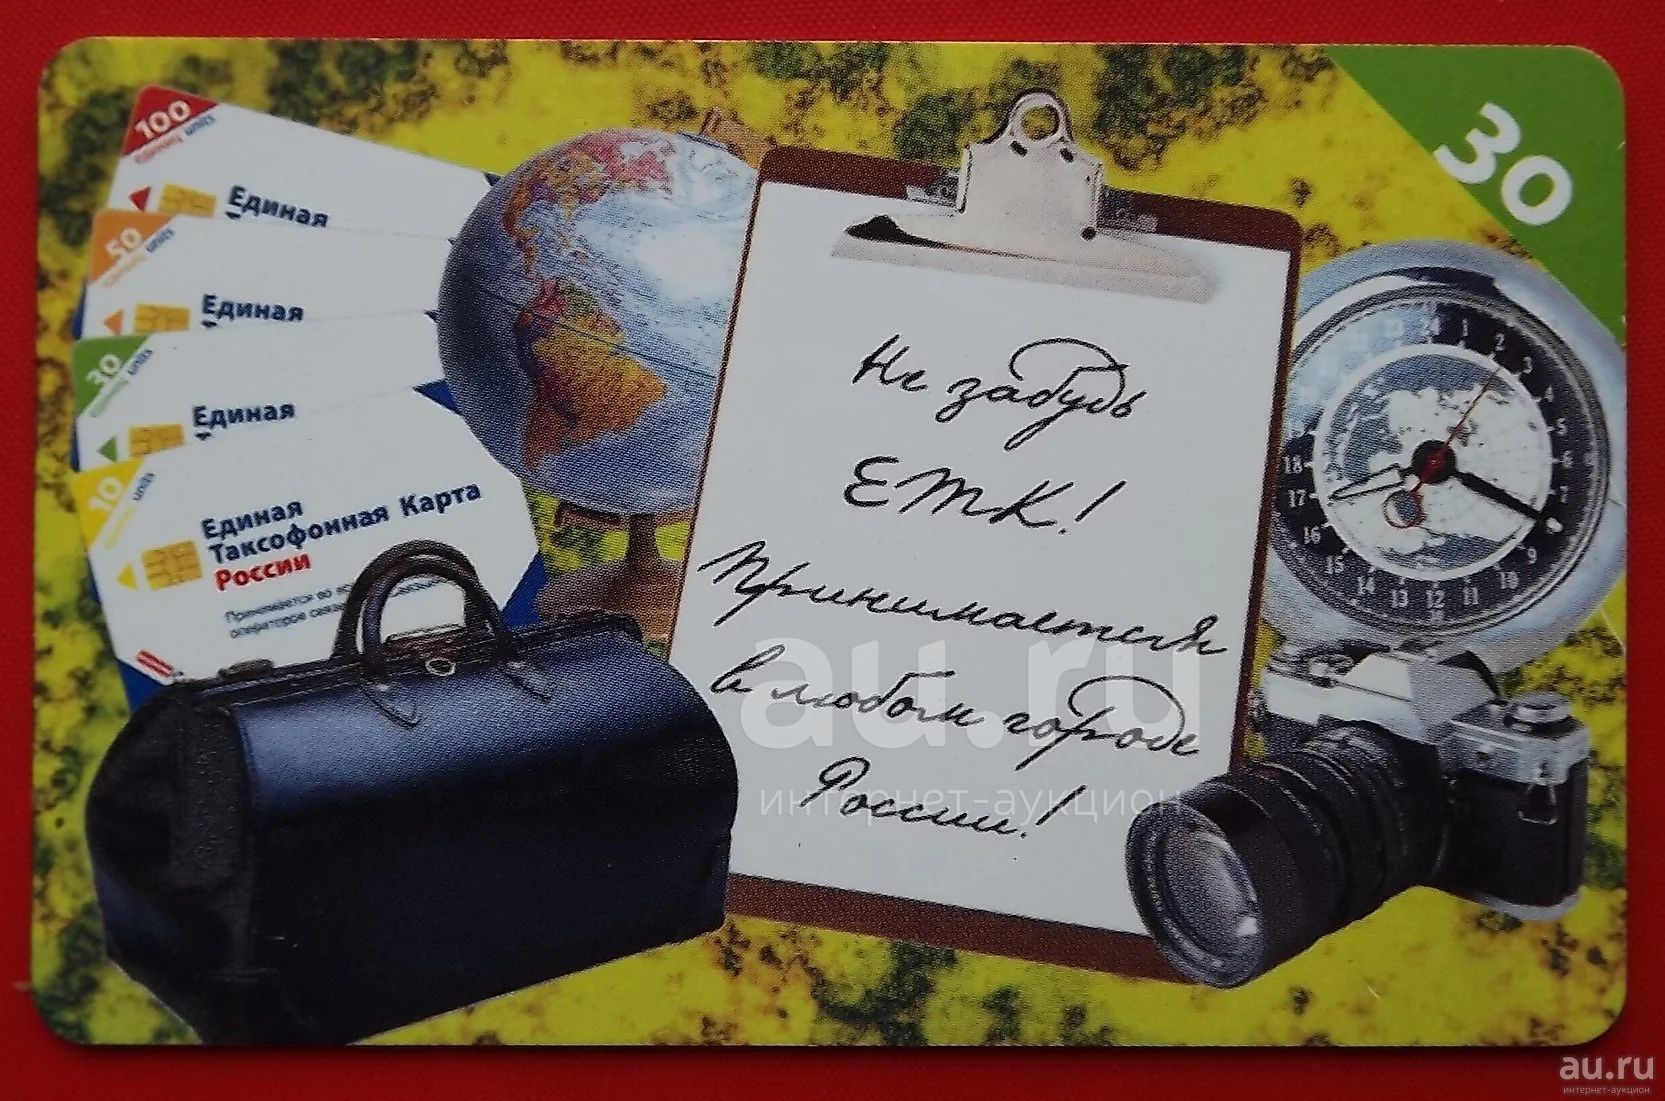 100
единиц units
Единая
50
единиц units
Единая
30
единиц units
Единая
10
units
Единая
Таксофонная Карта
России
Принимается во
операторов связи
30
Не забудь
ЕТК!
Принимается
в любом городе
России!
23 24 1 2 3 4 5 6 7 9 10 11 12 13 14 15 16 17 18
au.ru
интернет-аукцион
au.ru
интернет-аукцион